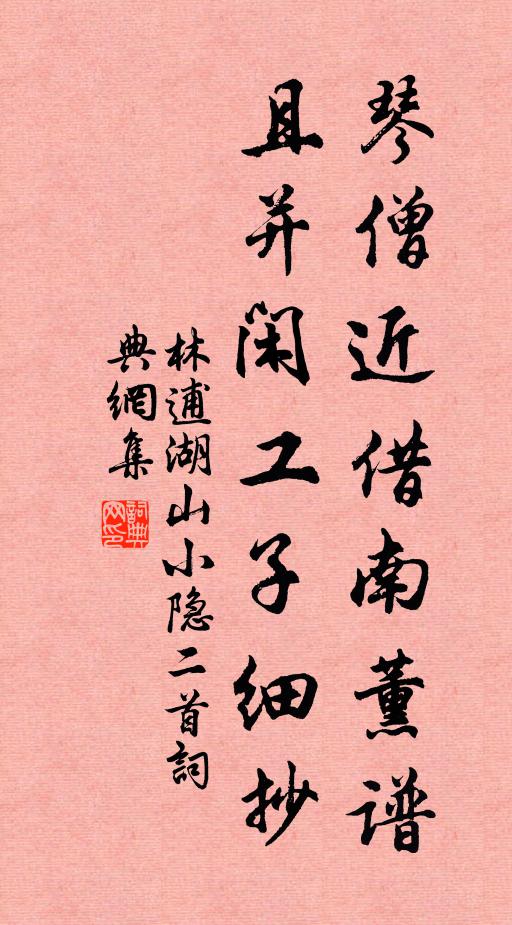 琴僧近借南薰譜
且并閑工子細抄
林逋湖山小隐二首詞
典網集
詞典網印